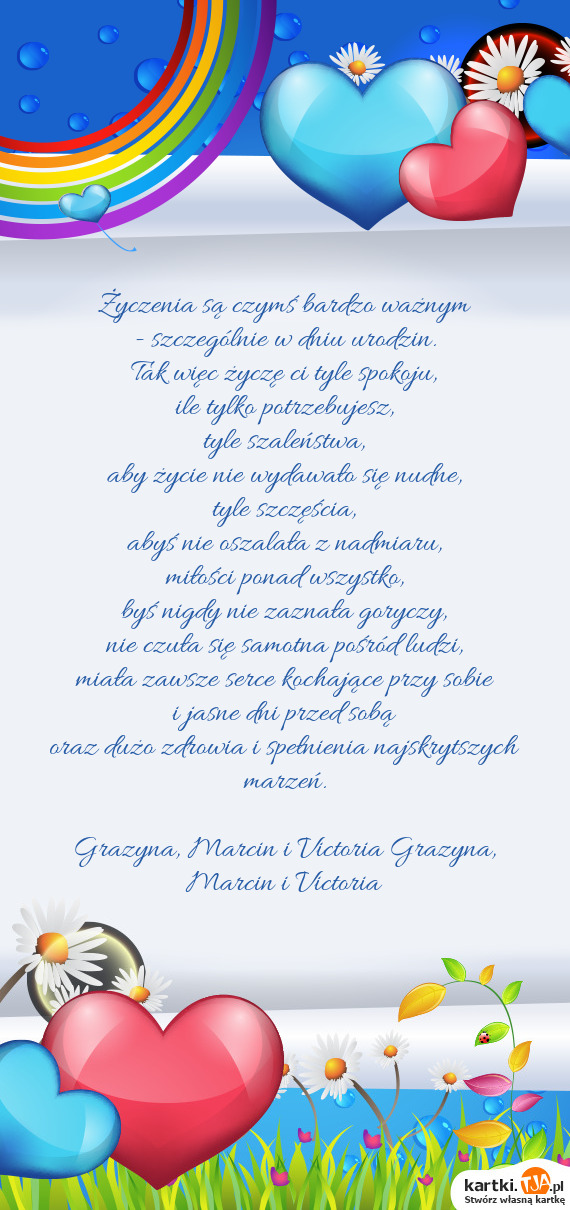 Życzenia są czymś bardzo ważnym
- szczególnie w dniu urodzin.
Tak więc życzę ci tyle spokoju,
ile tylko potrzebujesz,
tyle szaleństwa,
aby życie nie wydawało się nudne,
tyle szczęścia,
abyś nie oszalała z nadmiaru,
miłości ponad wszystko,
byś nigdy nie zaznała goryczy,
nie czuła się samotna pośród ludzi,
miała zawsze serce kochające przy sobie
i jasne dni przed sobą
oraz dużo zdrowia i spełnienia najskrytszych
marzeń.
Grazyna, Marcin i Victoria Grazyna,
Marcin i Victoria
kartki.TJA.pl
Stwórz własną kartkę